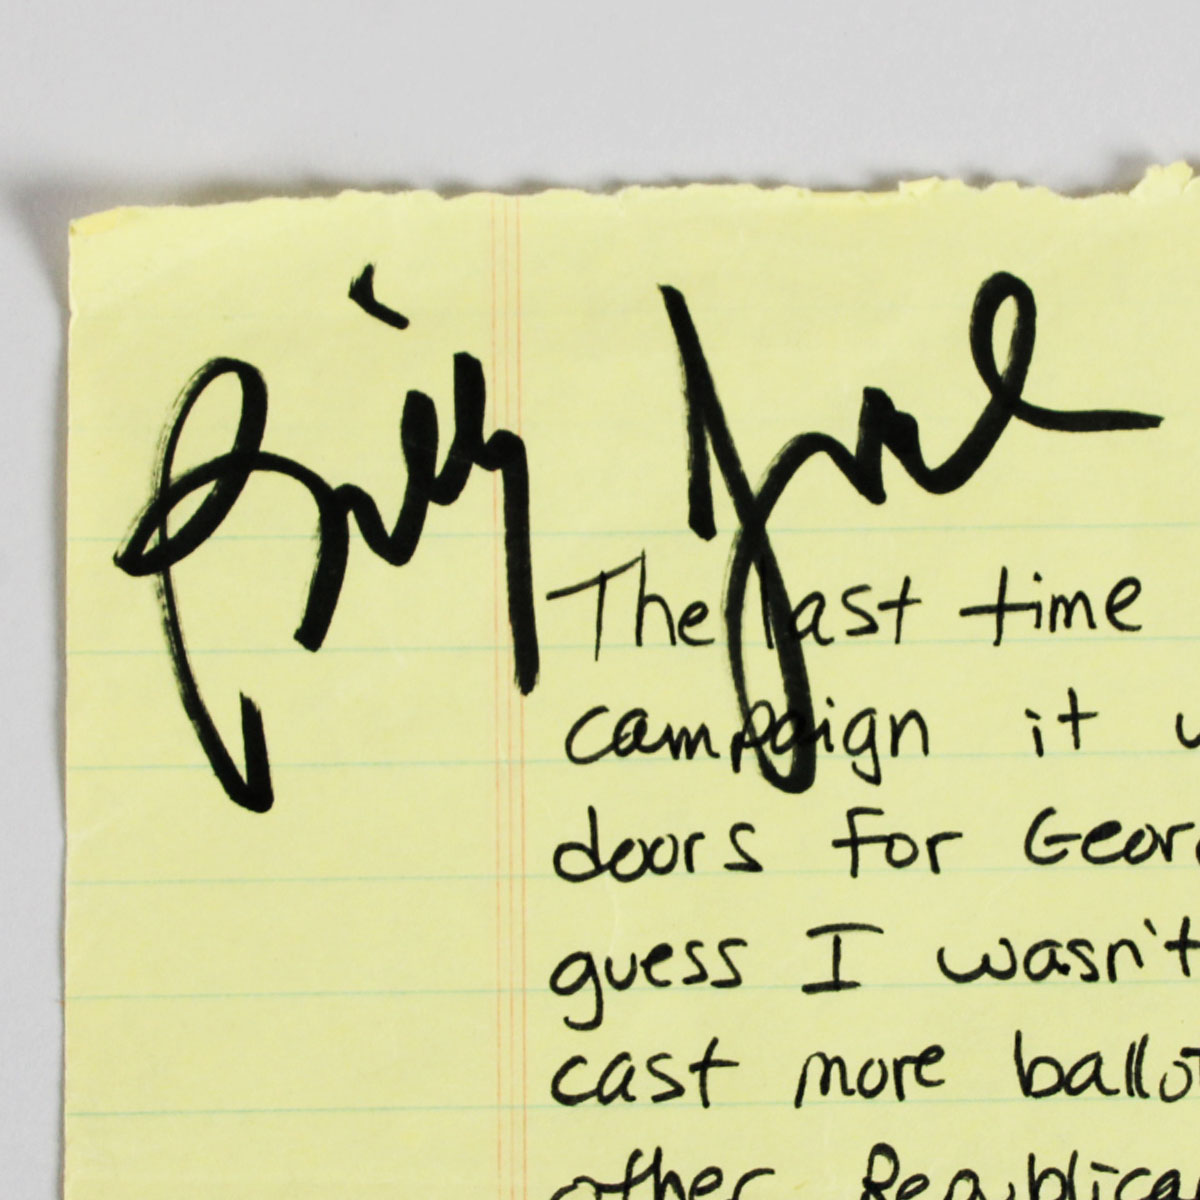 Billy Joel
The last time
campaign it w
doors for Geor
guess I wasn't
cast more ballot
other Republica